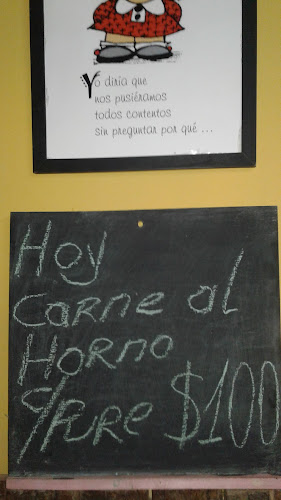 Yo diría que
nos pusiéramos
todos contentos
sin preguntar por qué ...
Hoy
carne al
Horno
c/Pure $100